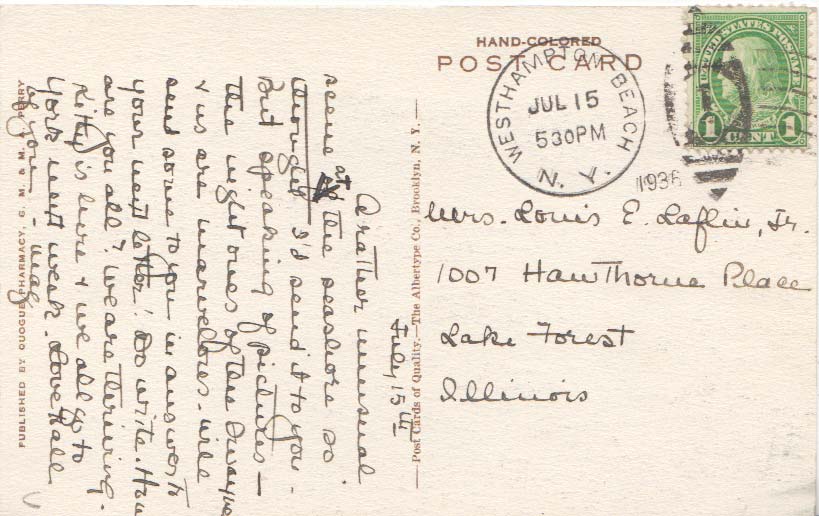 HAND-COLORED
POST CARD
WESTHAMPTON BEACH
JUL 15
530PM
N. Y.
1936
UNITED STATES POSTAGE
1 CENT 1
Mrs. Louis E. Laflin, Jr.
1007 Hawthorne Place
Lake Forest
Illinois
July 15th
A rather unusual
scene at the seashore so
thought I'd send it to you.
But speaking of pictures—
the night ones of the
& us are marvellous. will
send some to you in answer to
your next letter! Do write. How
are you all? We are thriving.
Kitty is here & we all go to
York next week. Love to all
of you —
—Post Cards of Quality.—The Albertype Co., Brooklyn, N. Y.—
PUBLISHED BY QUOGUE PHARMACY, G. M. & M. PERRY